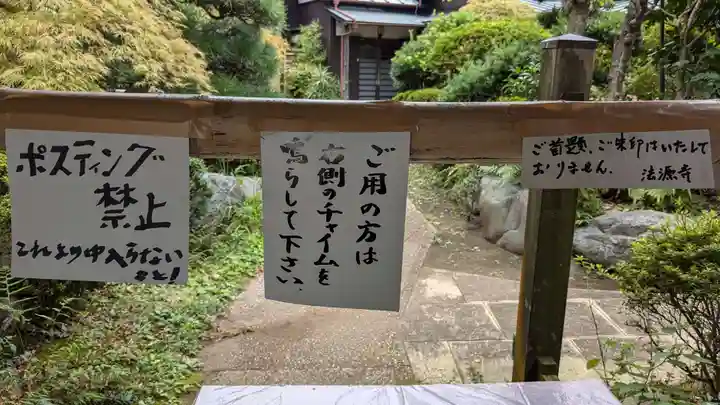 ポスティング
禁止
これより中入らない
こと!
ご用の方は
右側のチャイムを
鳴らして下さい.
ご首題、ご朱印はいたして
おりません. 法源寺